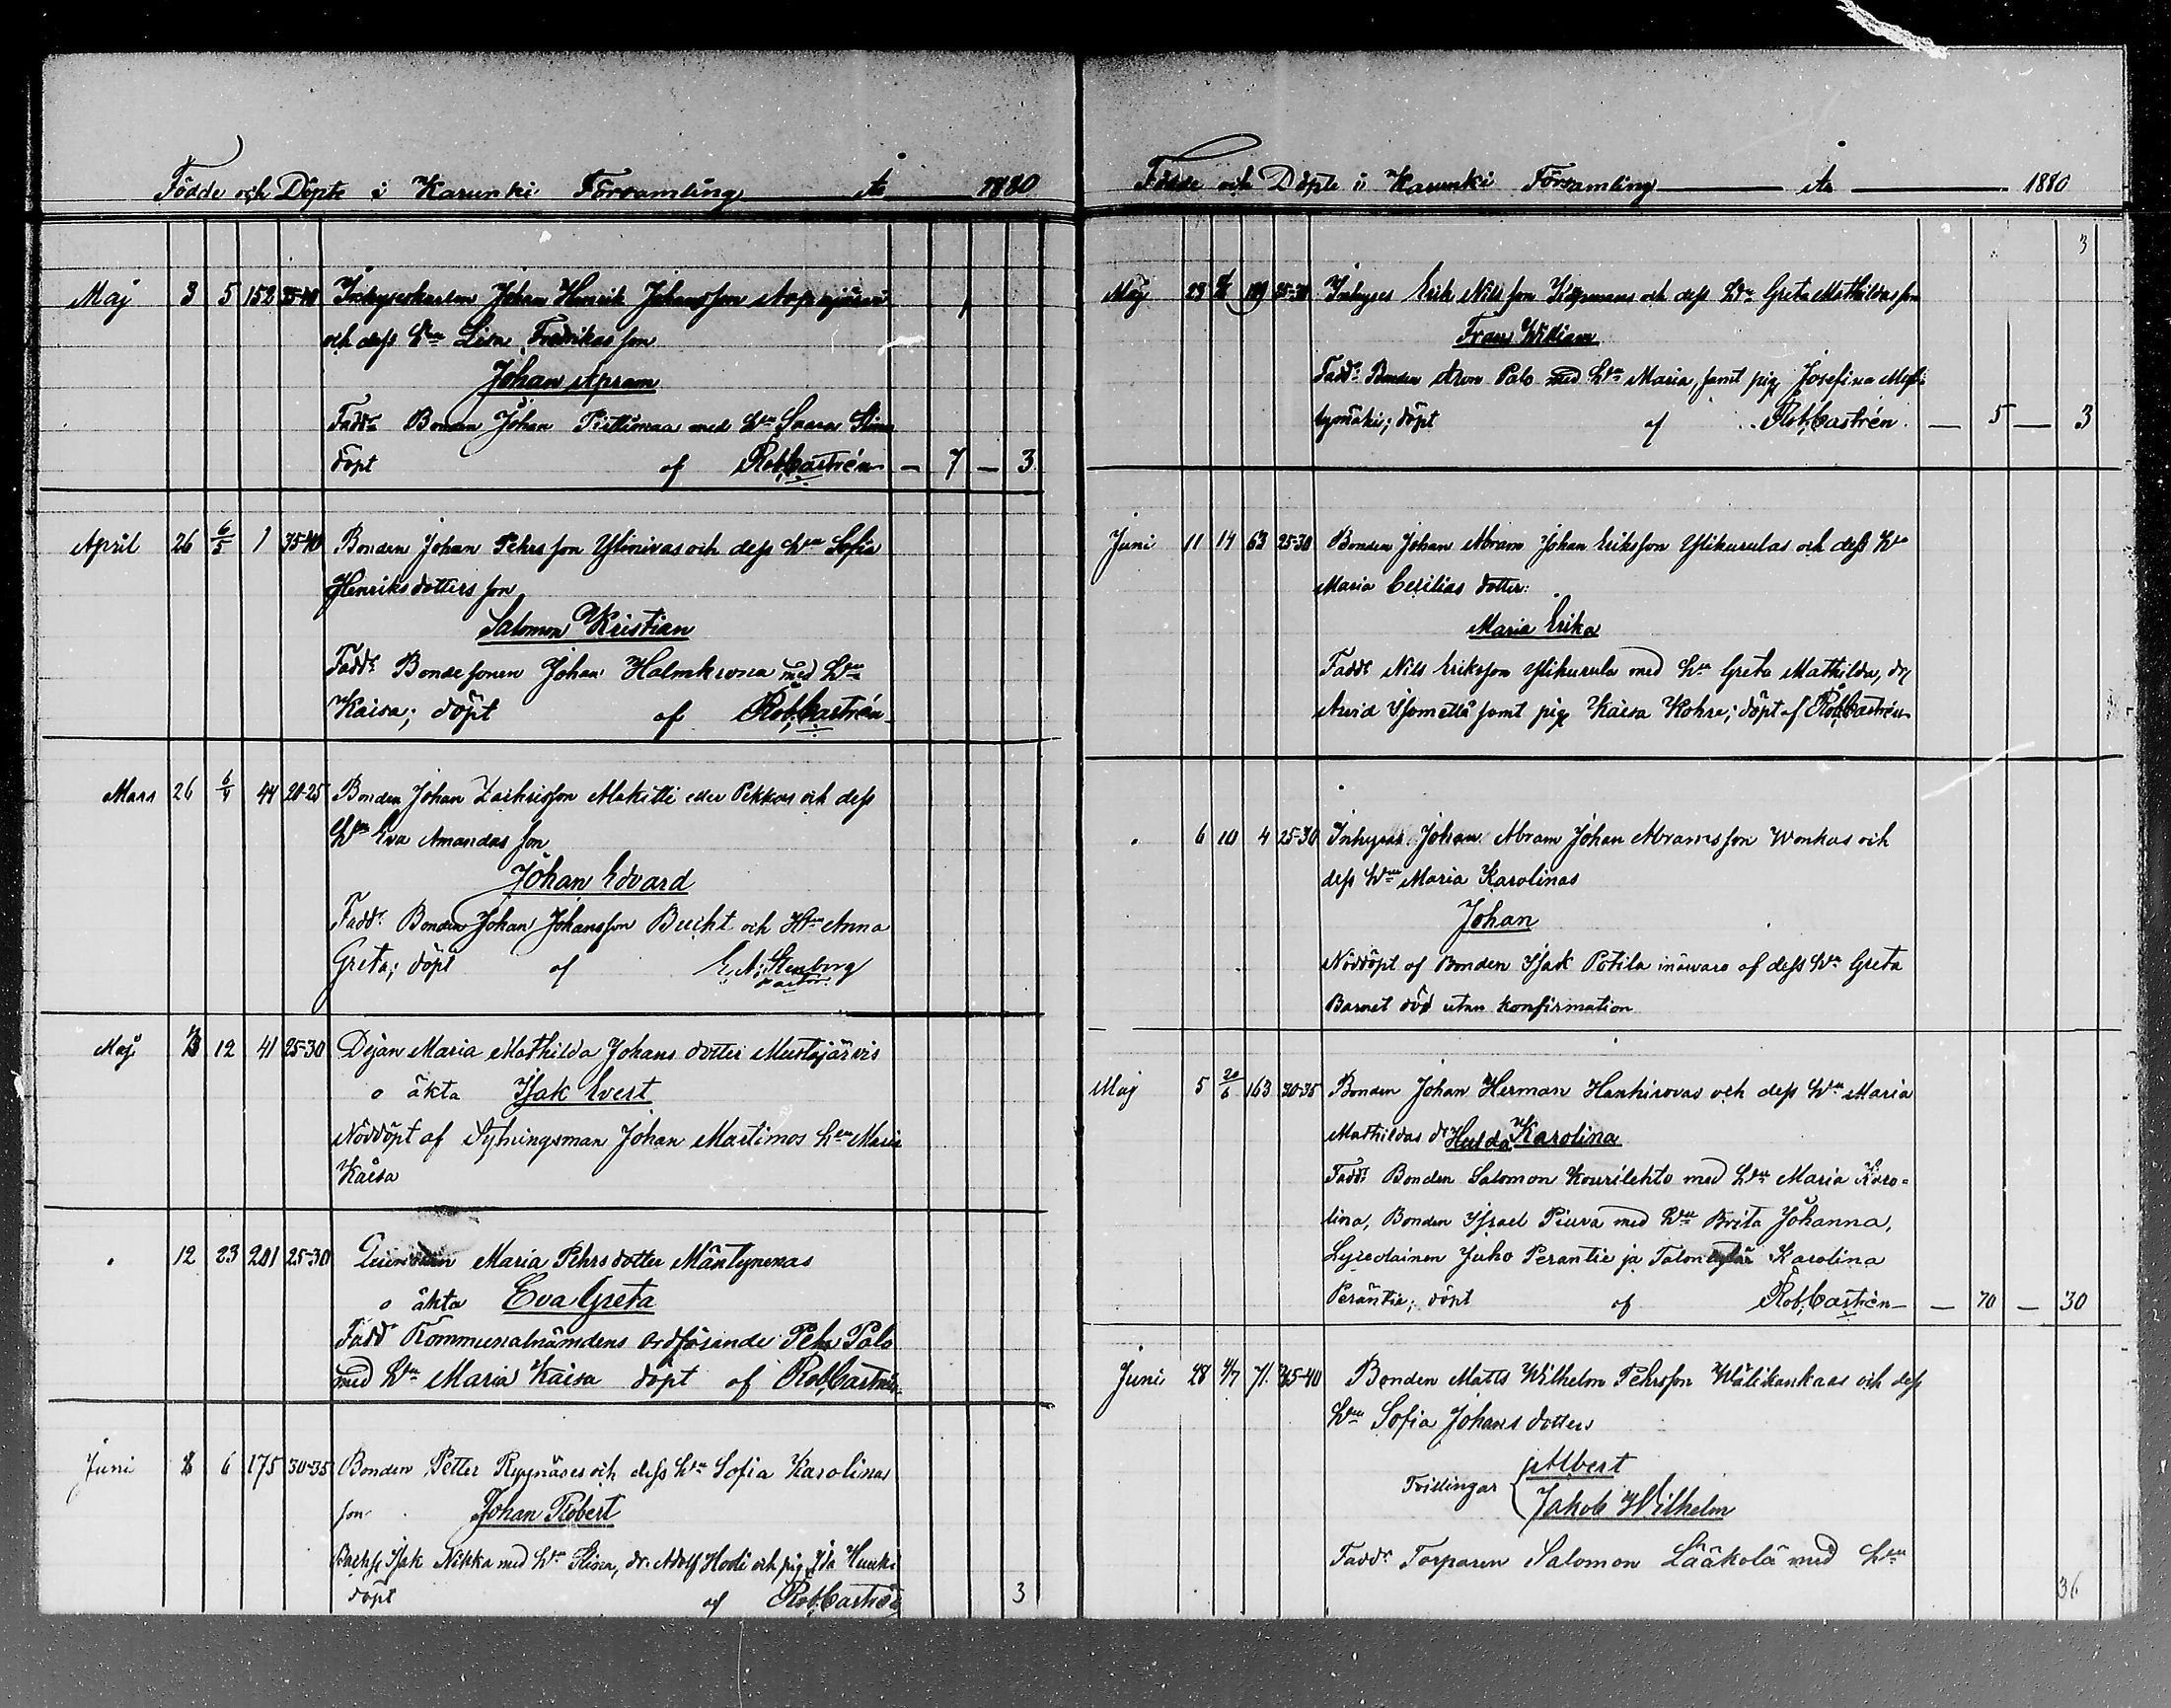 Födde och Döpte i Karunki Församling År 1880
Maj 3 5 152 35-40 Inhyseskarlen Johan Henrik Johansson
och dess Hu Lisa Fredrikas son
Johan Apram
Fadd. Bonden Johan med Hu Saara Stina
döpt af Rob. Castrén — 7 — 3
April 26 6/5 1 35-40 Bonden Johan Pehrsson Ylinivas och dess hu Sofia
Henriksdotters son
Salomon Kristian
Fadd. Bondesonen Johan Halmkrona med Hu
Kaisa; döpt af Rob. Castrén
Mars 26 6/4 44 20-25 Bonden Johan Zachrisson Alakitti eller Pekkas och dess
Hu Eva Amandas son
Johan Edvard
Fadd. Bonden Johan Johansson Bucht och Hu Anna
Greta; döpt af E. A. Stenborg
pastor.
Maj 12 41 25-30 Dejan Maria Mathilda Johans dotter Mustajärvis
o äkta Isak Evert
Nöddöpt af Sytningsman Johan Martimos Hu Maria
Kaisa
" 12 23 201 25-30 Maria Pehrs dotter Mäntynenas
o äkta Eva Greta
Fadd. Kommunalnämdens ordförande Pehr Palo
med Hu Maria Kaisa döpt af Rob. Castrén
Juni 6 175 30-35 Bonden Petter Ryynäses och dess Hu Sofia Karolinas
son Johan Robert
Isak Nikka med Hu Elisa, dr. Adolf Hooli och pig. Ida Hunki
döpt af Rob. Castrén 3
Födde och Döpte i Karunki Församling År 1880
3
Maj 29 109 25-30 Inhyses Erik Nilsson och dess Hu Greta Mathildas son
Frans William
Fadd. Bonden Aron Palo med Hu Maria, samt pig. Josefina
döpt af Rob. Castrén. — 5 — 3
Juni 11 14 63 25-30 Bonden Johan Abram Johan Eriksson Ylikurulas och dess Hu
Maria Cecilias dotter:
Maria Erika
Fadd. Nils Eriksson Ylikurula med Hu Greta Mathilda, dr.
Arvid Isometsä samt pig. Kaisa Kohre; döpt af Rob. Castrén
" 6 10 4 25-30 Inhyses Johan Abram Johan Abramsson Wonkas och
dess Hu Maria Karolinas
Johan
Nöddöpt af Bonden Isak Potila inäwaro af dess Hu Greta
Barnet död utan konfirmation
Maj 5 20/6 163 30-35 Bonden Johan Herman Hankirovas och dess Hu Maria
Mathildas dr Hulda Karolina
Fadd. Bonden Salomon Kourilehto med Hu Maria Karo=
lina, Bonden Israel Piuva med Hu Brita Johanna,
Juho Perantie ja Karolina
Peräntie; döpt af Rob. Castrén — 70 — 30
Juni 28 4/7 71. 35-40 Bonden Matts Wilhelm Pehrsson Wälikankaas och dess
Hu Sofia Johans dotters
Albert
Tvillingar
Jakob Wilhelm
Fadd. Torparen Salomon Lääkölä med Hu
36